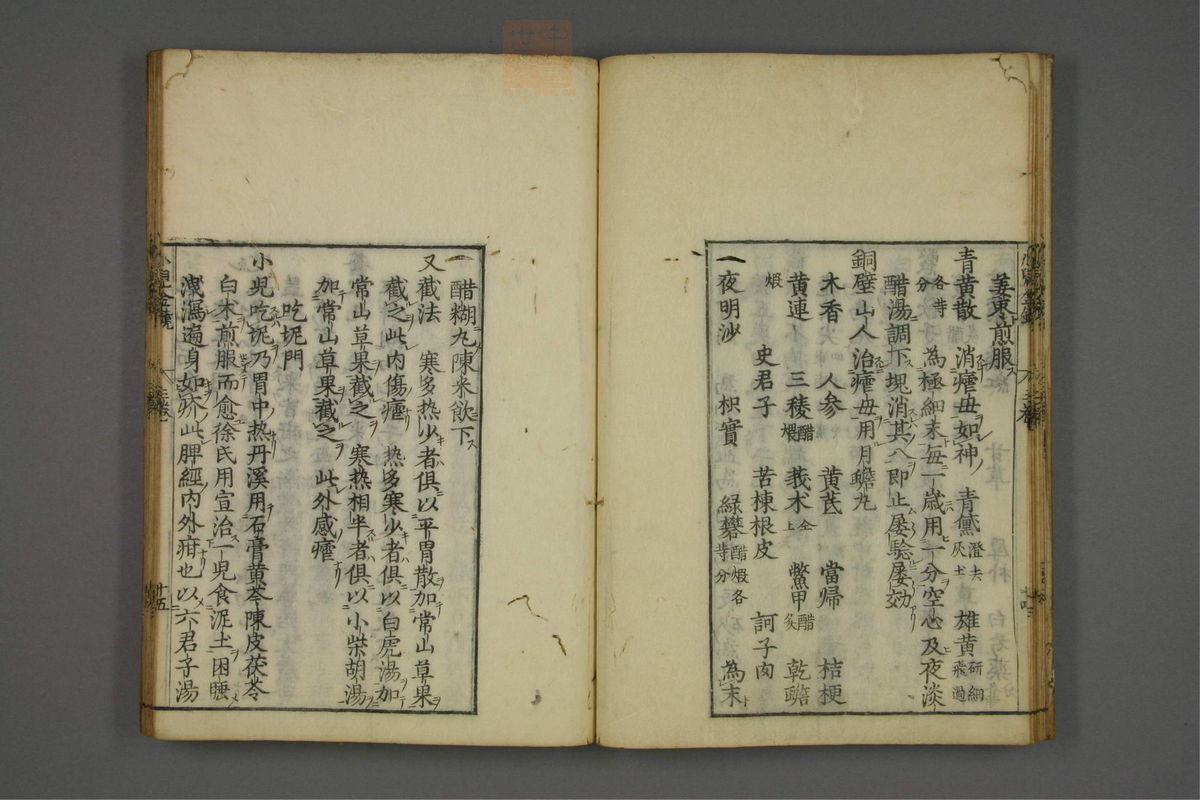 姜棗煎服
青黃散 消瘧毋如神 青黛澄去灰土 雄黃研細飛過
各等分 為極細末每一歲用一分空心及夜淡
醋湯調下塊消其八即止屡驗屡効
銅壁山人治瘧毋用月蟾丸
木香 人參 黃芪 當歸 桔梗
黃連 三稜醋煨 莪术仝上 鱉甲醋炙 乾蟾
煅 史君子 苦楝根皮 訶子肉
一夜明沙 枳實 緑礬醋煅各等分 為末
一醋糊丸陳米飲下
又截法 寒多热少者俱以平胃散加常山草果
截之此内傷瘧 热多寒少者俱以白虎湯加
常山草果截之 寒热相半者俱以小柴胡湯
加常山草果截之 此外感瘧
吃坭門
小児吃坭乃胃中热丹溪用石膏黄芩陳皮茯苓
白术煎服而愈徐氏用宣治一児食泥土困睡
洩瀉遍身如疥此脾經内外疳也以六君子湯
小兒金鏡 三卷 十五